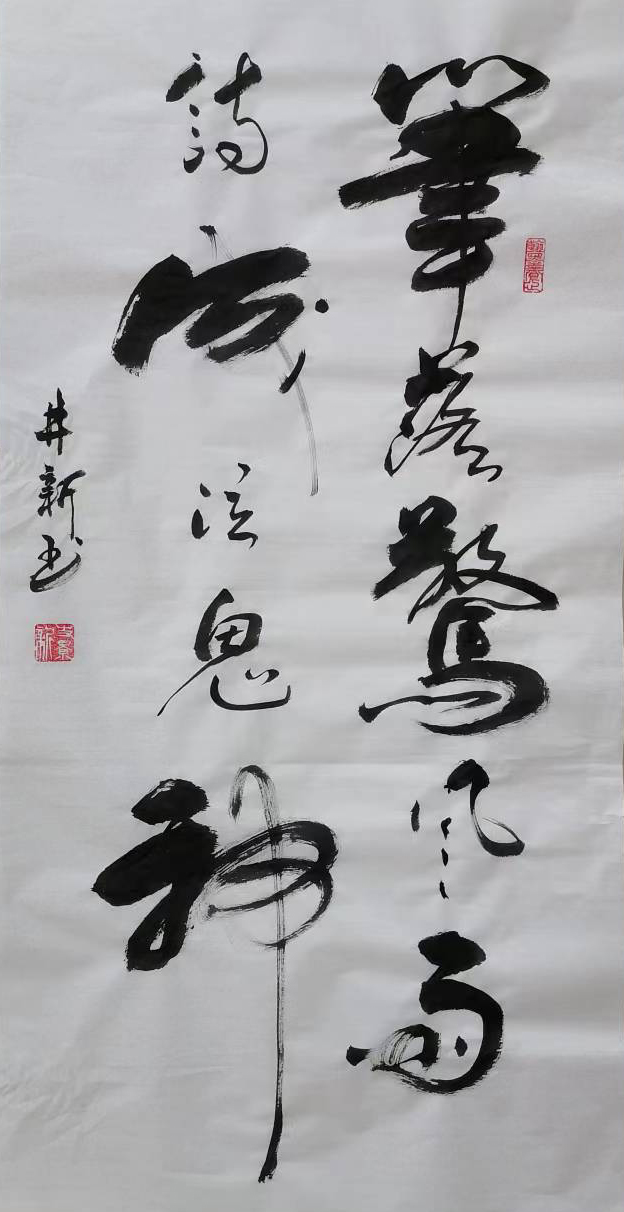 筆落驚風雨
詩成泣鬼神
井新书